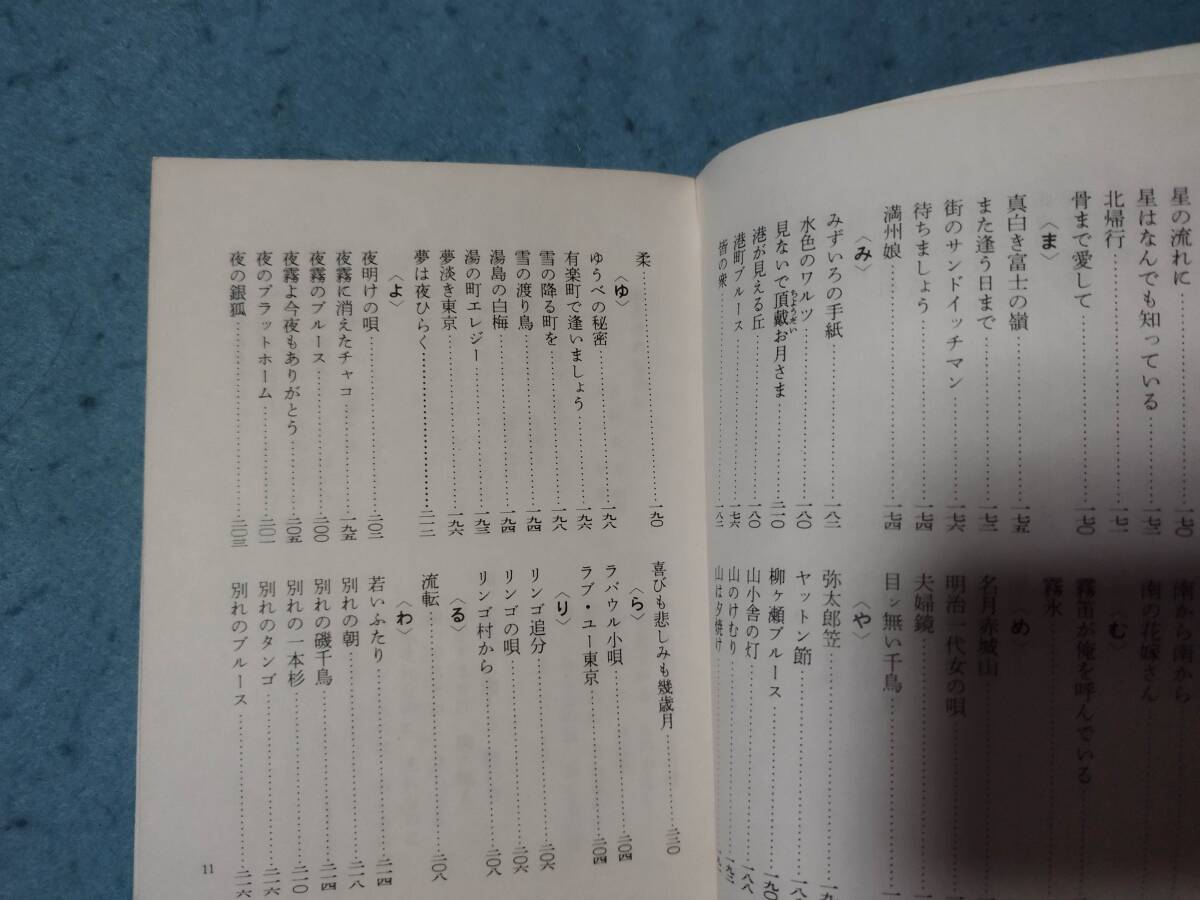 星の流れに……一七〇
星はなんでも知っている……一七二
北帰行……一七一
骨まで愛して……一七〇
〈ま〉
真白き富士の嶺……一七五
また逢う日まで……一七二
街のサンドイッチマン……一七六
待ちましょう……一七四
満州娘……一七四
〈み〉
みずいろの手紙……一八二
水色のワルツ……一八〇
見ないで頂戴お月さま……二一〇
ちょうだい
港が見える丘……一八〇
港町ブルース……一七六
皆の衆……一八二
南から南から
南の花嫁さん
〈む〉
霧笛が俺を呼んでいる
霧氷
〈め〉
名月赤城山
明治一代女の唄
夫婦鏡
目ン無い千鳥
〈や〉
弥太郎笠
ヤットン節
柳ヶ瀬ブルース……一九〇
山小舎の灯……一八八
山のけむり……一九二
山は夕焼け
柔……一九〇
〈ゆ〉
ゆうべの秘密……一九八
有楽町で逢いましょう……一九六
雪の降る町を……一九八
雪の渡り鳥……一九四
湯島の白梅……一九四
湯の町エレジー……一九三
夢淡き東京……一九六
夢は夜ひらく……二一二
〈よ〉
夜明けの唄……二〇二
夜霧に消えたチャコ……一九五
夜霧のブルース……二〇〇
夜霧よ今夜もありがとう……二〇五
夜のプラットホーム……二〇一
夜の銀狐……二〇三
喜びも悲しみも幾歳月……二二〇
〈ら〉
ラバウル小唄……二〇四
ラブ・ユー東京……二〇四
〈り〉
リンゴ追分……二〇六
リンゴの唄……二〇六
リンゴ村から……二〇八
〈る〉
流転……二〇八
〈わ〉
若いふたり……二一四
別れの朝……二一八
別れの磯千鳥……二一四
別れの一本杉……二一〇
別れのタンゴ……二一六
別れのブルース……二一六
11